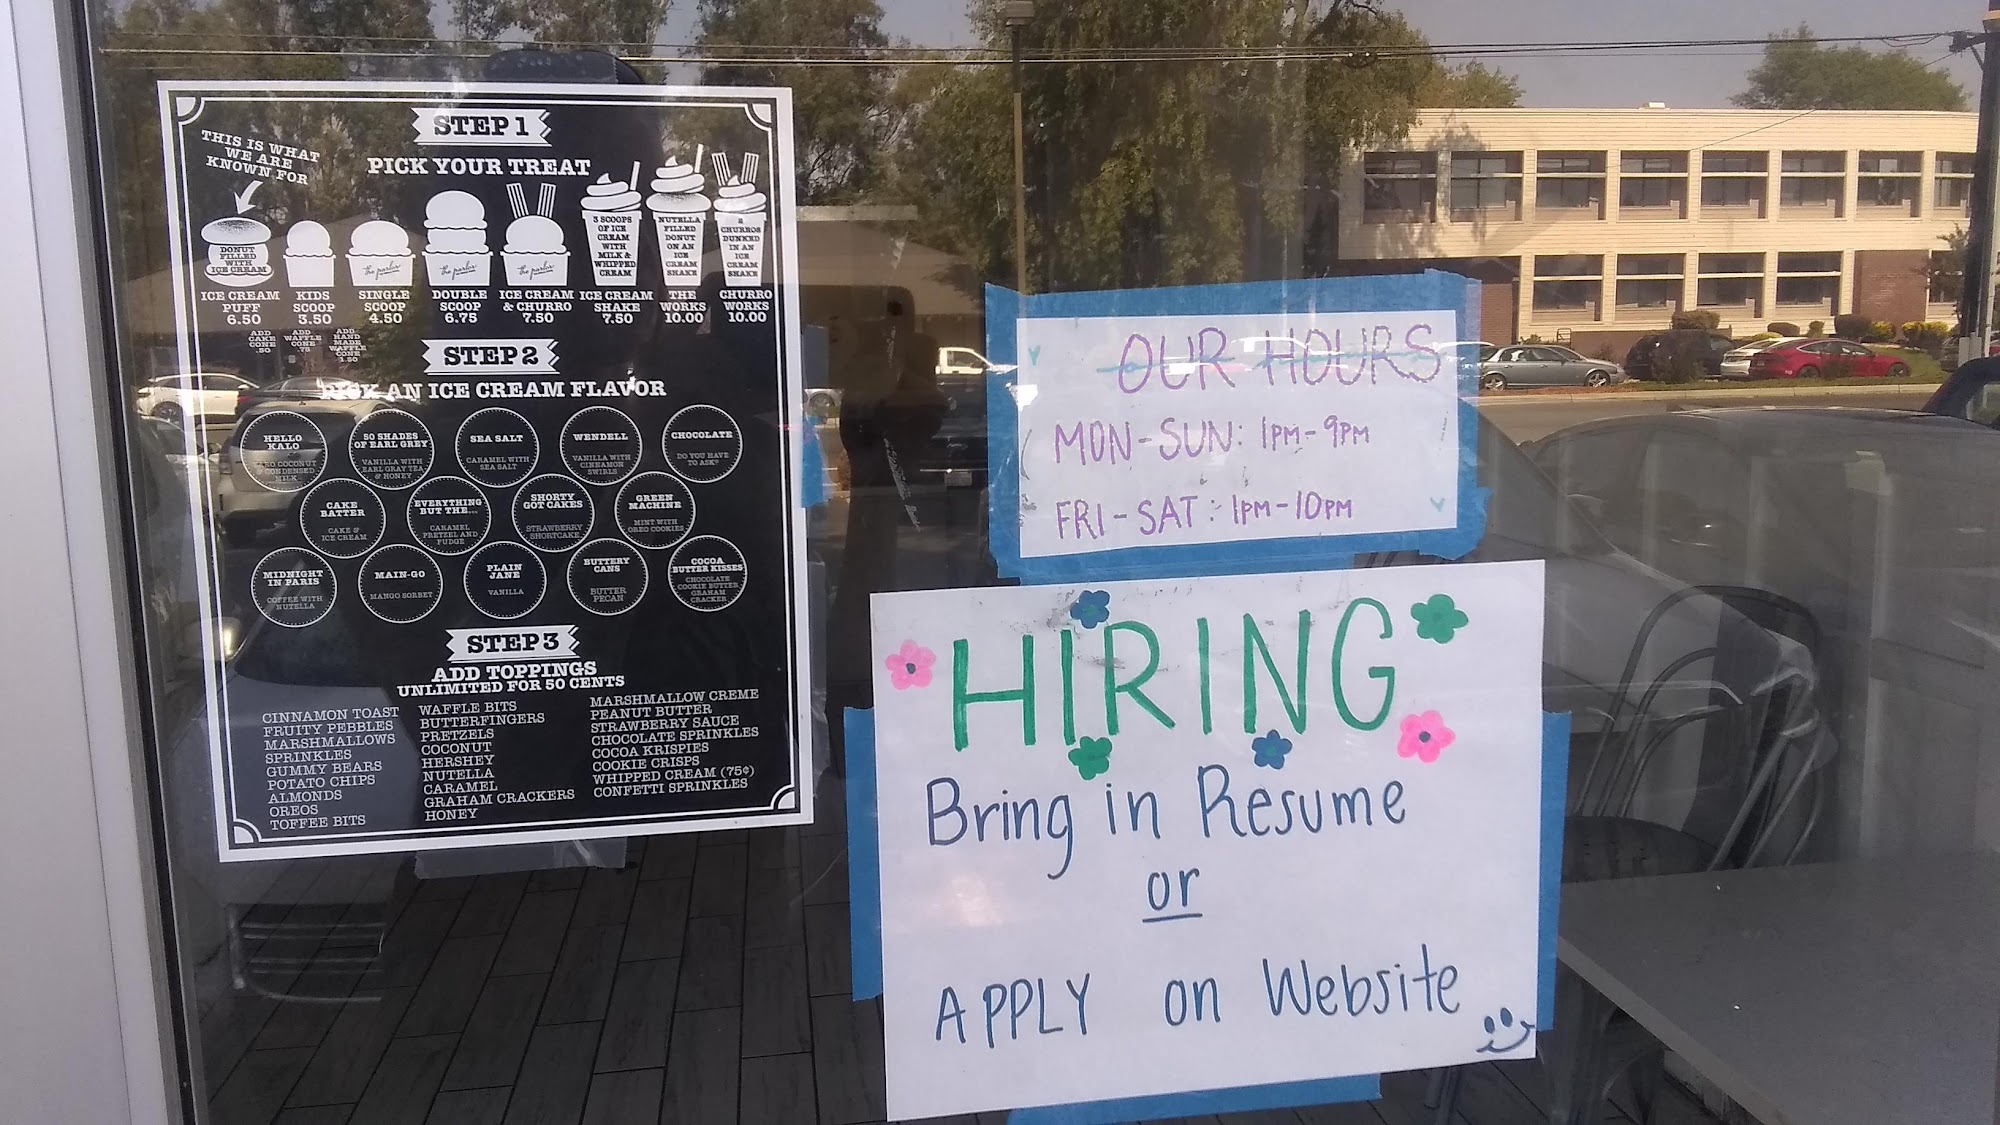 STEP 1
THIS IS WHAT
WE ARE
KNOWN FOR
PICK YOUR TREAT
DONUT
FILLED
WITH
ICE CREAM
the parlor
the parlor
the parlor
3 SCOOPS
OF ICE
CREAM
WITH
MILK &
WHIPPED
CREAM
NUTELLA
FILLED
DONUT
ON AN
ICE
CREAM
SHAKE
2
CHURROS
DUNKED
IN AN
ICE
CREAM
SHAKE
ICE CREAM
PUFF
6.50
KIDS
SCOOP
3.50
SINGLE
SCOOP
4.50
DOUBLE
SCOOP
6.75
ICE CREAM
& CHURRO
7.50
ICE CREAM
SHAKE
7.50
THE
WORKS
10.00
CHURRO
WORKS
10.00
ADD
CAKE
CONE
.50
ADD
WAFFLE
CONE
.75
ADD
HAND
MADE
WAFFLE
CONE
1.50
STEP 2
PICK AN ICE CREAM FLAVOR
HELLO
KALO
TARO COCONUT
& CONDENSED
MILK
50 SHADES
OF EARL GREY
VANILLA WITH
EARL GRAY TEA
& HONEY
SEA SALT
CARAMEL WITH
SEA SALT
WENDELL
VANILLA WITH
CINNAMON
SWIRLS
CHOCOLATE
DO YOU HAVE
TO ASK?
CAKE
BATTER
CAKE &
ICE CREAM
EVERYTHING
BUT THE...
CARAMEL
PRETZEL AND
FUDGE
SHORTY
GOT CAKES
STRAWBERRY
SHORTCAKE
GREEN
MACHINE
MINT WITH
OREO COOKIES
MIDNIGHT
IN PARIS
COFFEE WITH
NUTELLA
MAIN-GO
MANGO SORBET
PLAIN
JANE
VANILLA
BUTTERY
CANS
BUTTER
PECAN
COCOA
BUTTER KISSES
CHOCOLATE
COOKIE BUTTER
GRAHAM
CRACKER
STEP 3
ADD TOPPINGS
UNLIMITED FOR 50 CENTS
CINNAMON TOAST
FRUITY PEBBLES
MARSHMALLOWS
SPRINKLES
GUMMY BEARS
POTATO CHIPS
ALMONDS
OREOS
TOFFEE BITS
WAFFLE BITS
BUTTERFINGERS
PRETZELS
COCONUT
HERSHEY
NUTELLA
CARAMEL
GRAHAM CRACKERS
HONEY
MARSHMALLOW CREME
PEANUT BUTTER
STRAWBERRY SAUCE
CHOCOLATE SPRINKLES
COCOA KRISPIES
COOKIE CRISPS
WHIPPED CREAM (75¢)
CONFETTI SPRINKLES
OUR HOURS
MON-SUN: 1PM-9PM
FRI-SAT: 1PM-10PM
HIRING
Bring in Resume
or
APPLY on Website